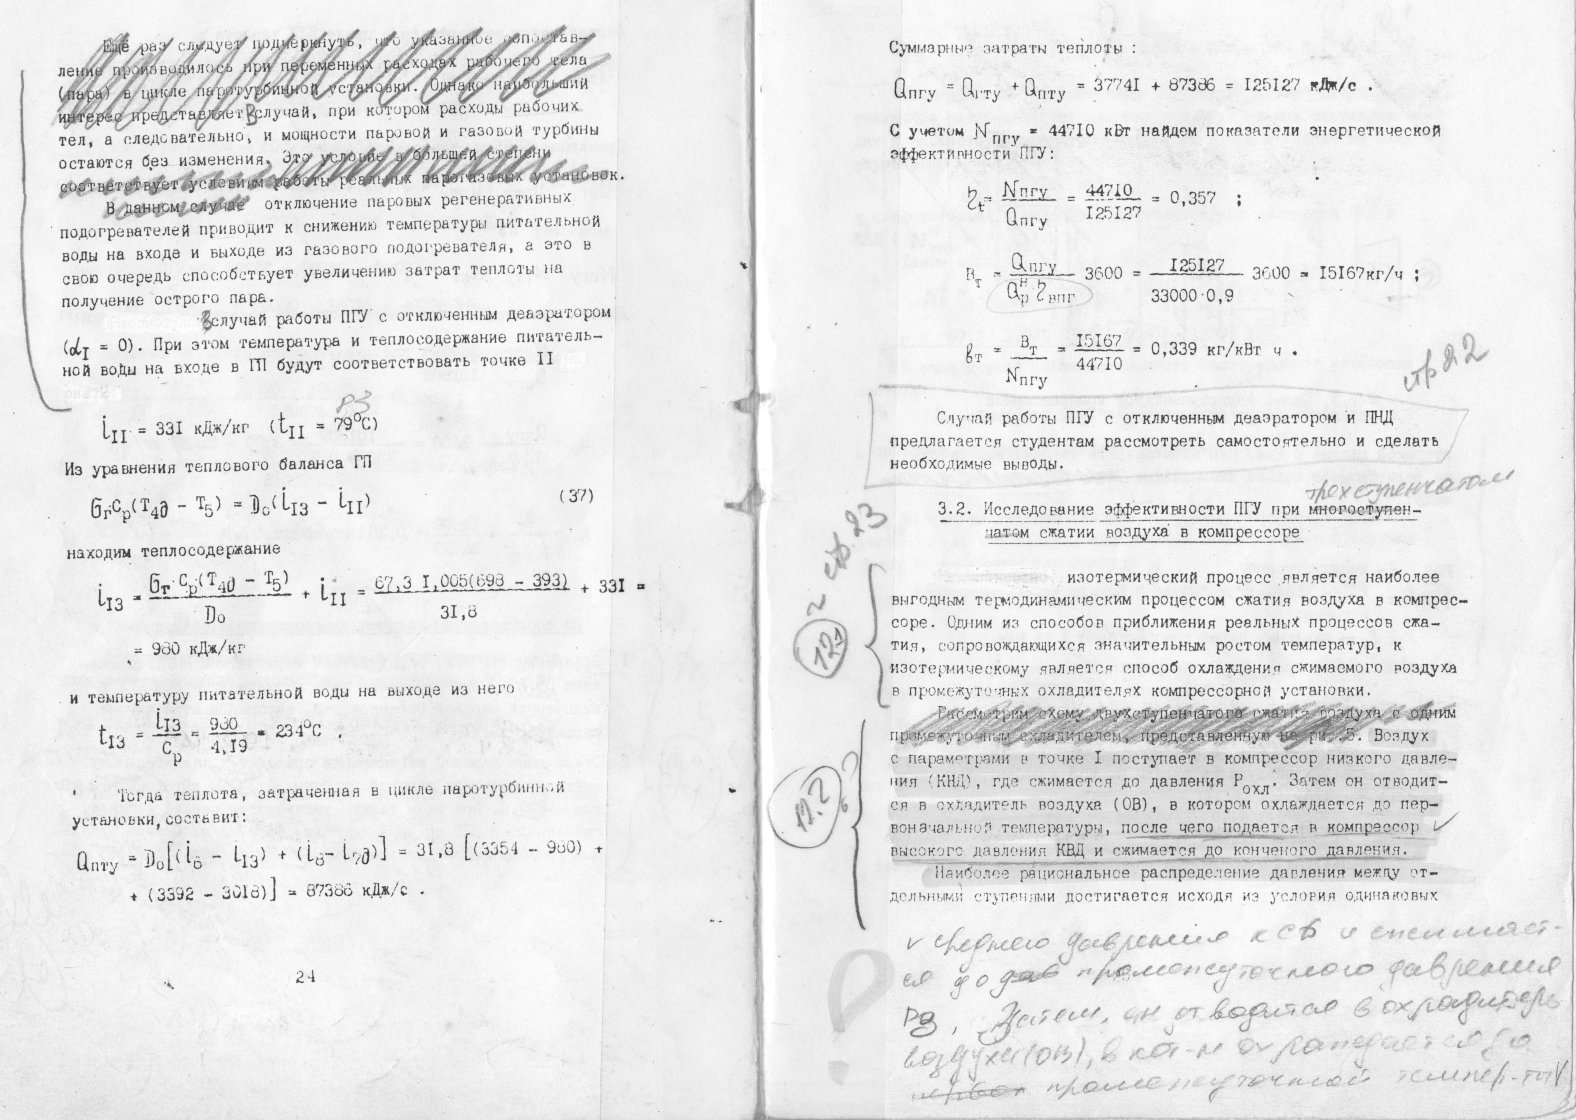 Еще раз следует подчеркнуть, что указанное сопостав-
ление производилось при переменных расходах рабочего тела
(пара) в цикле паротурбинной установки. Однако наибольший
интерес представляет В случай, при котором расходы рабочих
тел, а следовательно, и мощности паровой и газовой турбины
остаются без изменения. Это условие в большей степени
соответствует условиям работы реальных парогазовых установок.
В данном случае отключение паровых регенеративных
подогревателей приводит к снижению температуры питательной
воды на входе и выходе из газового подогревателя, а это в
свою очередь способствует увеличению затрат теплоты на
получение острого пара.
В случай работы ПГУ с отключенным деаэратором
(α_I = 0). При этом температура и теплосодержание питатель-
ной воды на входе в ГП будут соответствовать точке II
р3
i_II = 33I кДж/кг (t_II = 79°С)
Из уравнения теплового баланса ГП
Gг Cр(T4д - T5) = Dо(i_I3 - i_II) (37)
находим теплосодержание
i_I3 = Gг·Cр(T4д - T5) / Dо + i_II = 67,3 I,005(698 - 393) / 3I,8 + 33I =
= 980 кДж/кг
и температуру питательной воды на выходе из него
t_I3 = i_I3 / Cр = 980 / 4,I9 = 234°С .
Тогда теплота, затраченная в цикле паротурбинной
установки, составит:
Qпту = Dо[(i6 - i_I3) + (i8 - i7д)] = 3I,8 [(3354 - 980) +
+ (3392 - 30I8)] = 87386 кДж/с .
24
Суммарные затраты теплоты :
Qпгу = Qгту + Qпту = 3774I + 87386 = I25I27 кДж/с .
С учетом Nпгу = 447I0 кВт найдем показатели энергетической
эффективности ПГУ:
η_t = Nпгу / Qпгу = 447I0 / I25I27 = 0,357 ;
Вт = Qпгу / Qрн ηвпг 3600 = I25I27 / 33000·0,9 3600 = I5I67кг/ч ;
вт = Вт / Nпгу = I5I67 / 447I0 = 0,339 кг/кВт ч .
стр 22
Случай работы ПГУ с отключенным деаэратором и ПНД
предлагается студентам рассмотреть самостоятельно и сделать
необходимые выводы.
трехступенчатом
3.2. Исследование эффективности ПГУ при многоступен-
чатом сжатии воздуха в компрессоре
стр. 23
12.1
изотермический процесс является наиболее
выгодным термодинамическим процессом сжатия воздуха в компрес-
соре. Одним из способов приближения реальных процессов сжа-
тия, сопровождающихся значительным ростом температур, к
изотермическому является способ охлаждения сжимаемого воздуха
в промежуточных охладителях компрессорной установки.
Рассмотрим схему двухступенчатого сжатия воздуха с одним
промежуточным охладителем, представленную на рис. 5. Воздух
с параметрами в точке I поступает в компрессор низкого давле-
ния (КНД), где сжимается до давления Pохл. Затем он отводит-
ся в охладитель воздуха (ОВ), в котором охлаждается до пер-
воначальной температуры, после чего подается в компрессор ✓
высокого давления КВД и сжимается до конченого давления.
12.2
Наиболее рациональное распределение давления между от-
дельными ступенями достигается исходя из условия одинаковых
✓ среднего давления КСД и сжимает-
ся до дав промежуточного давления
Рд. Затем, он отводится в охладитель
воздуха (ОВ), в кот-м охлаждается до
промежуточной темпер-ты ✓
?